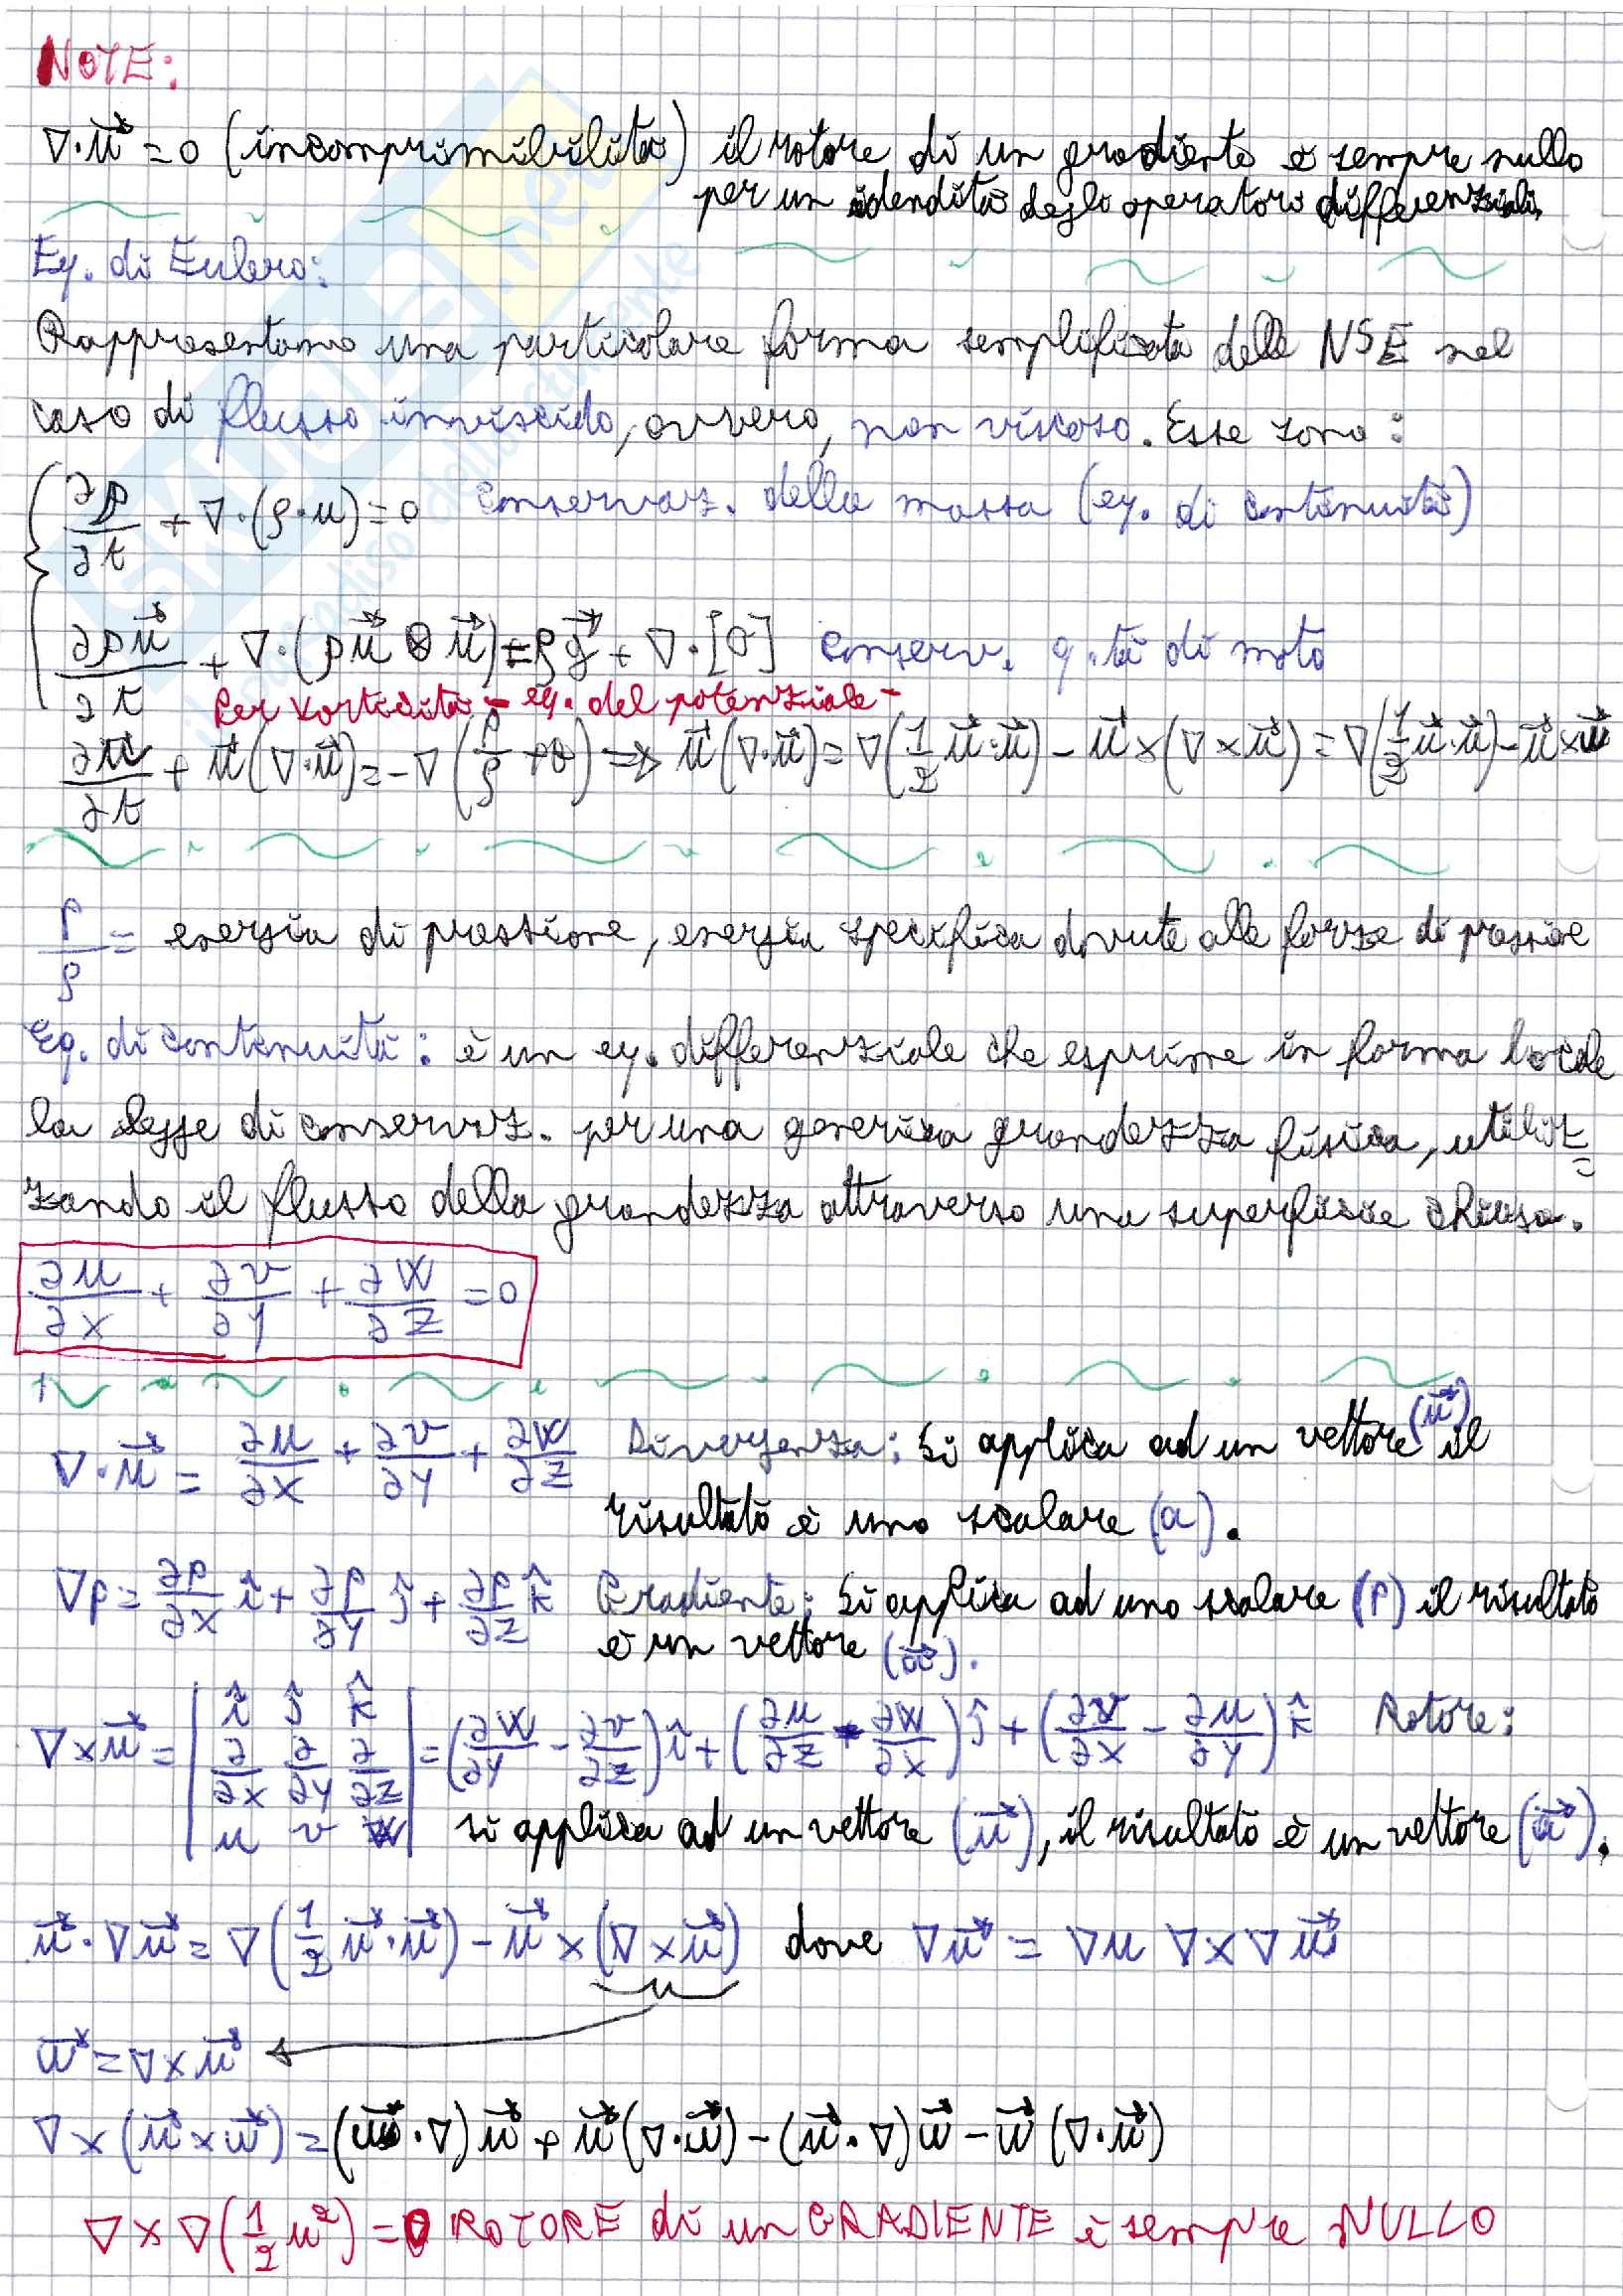 NOTE:
∇·u⃗ = 0 (incomprimibilità) il rotore di un gradiente è sempre nullo
per un idendità degli operatori differenziali,
Eq. di Eulero:
Rappresentano una particolare forma semplificata delle NSE nel
caso di flusso inviscido, ovvero, non viscoso. Esse sono:
∂ρ/∂t + ∇·(ρ·u) = 0 Conservaz. della massa (eq. di continuità)
∂ρu⃗/∂t + ∇·(ρu⃗ ⊗ u⃗) = ρg⃗ + ∇·[σ] Conserv. q.tà di moto
Per vorticità - eq. del potenziale -
∂u⃗/∂t + u⃗(∇·u⃗) = -∇(p/ρ + θ) → u⃗(∇·u⃗) = ∇(1/2 u⃗·u⃗) - u⃗×(∇×u⃗) = ∇(1/2 u⃗·u⃗) - u⃗×w⃗
p/ρ = energia di pressione, energia specifica dovute alle forze di pressione
Eq. di continuità: è un eq. differenziale che esprime in forma locale
la legge di conservaz. per una generica grandezza fisica, utiliz=
zando il flusso della grandezza attraverso una superficie chiusa.
∂u/∂x + ∂v/∂y + ∂w/∂z = 0
∇·u⃗ = ∂u/∂x + ∂v/∂y + ∂w/∂z Divergenza: si applica ad un vettore (u⃗) il
risultato è uno scalare (a).
∇p = ∂p/∂x î + ∂p/∂y ĵ + ∂p/∂z k̂ Gradiente: si applica ad uno scalare (p) il risultato
è un vettore
∇×u⃗ = | î ĵ k̂ | = (∂w/∂y - ∂v/∂z) î + (∂u/∂z - ∂w/∂x) ĵ + (∂v/∂x - ∂u/∂y) k̂ Rotore:
| ∂/∂x ∂/∂y ∂/∂z |
| u v w | si applica ad un vettore (u⃗), il risultato è un vettore (u⃗).
u⃗·∇u⃗ = ∇(1/2 u⃗·u⃗) - u⃗×(∇×u⃗) dove ∇u⃗ = ∇u ∇×∇u⃗
w⃗ = ∇×u⃗
∇×(u⃗×w⃗) = (w⃗·∇)u⃗ + u⃗(∇·w⃗) - (u⃗·∇)w⃗ - w⃗(∇·u⃗)
∇×∇(1/2 u²) = 0 ROTORE di un GRADIENTE è sempre NULLO